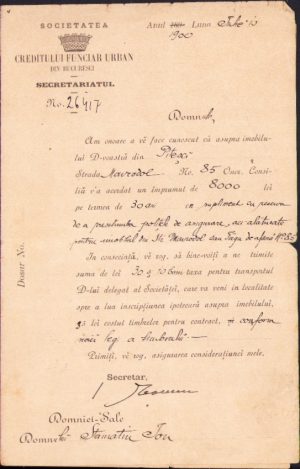 SOCIETATEA
CREDITULUI FUNCIAR URBAN
DIN BUCURESCI
SECRETARIATUL
No. 26917
Anul Luna
1900
Domnule,
Am onoare a vĕ face cunoscut că asupra imobilu-
lui D-voastră din Pitești
Strada Mavrodol No. 35 Onor. Consi-
liŭ v'a acordat un împrumut de 8000 lei
pe termen de 30 ani în supliment cu
de a politele de asigurare, aci alaturate
pentru imobilul din Str. Mavrodol
În consecință, vĕ rog, să bine-voiți a ne trimite
suma de lei 30 și 10 bani taxa pentru transportul
D-lui delegat al Societăței, care va veni în localitate
spre a lua inscripțiunea ipotecară asupra imobilului,
și lei costul timbrelor pentru contract, conform
legi a timbrului.
Primiți, vĕ rog, asigurarea considerațiunei mele.
Secretar,
Domniei-Sale
Domnului Stamatin Ion
Dosar No.